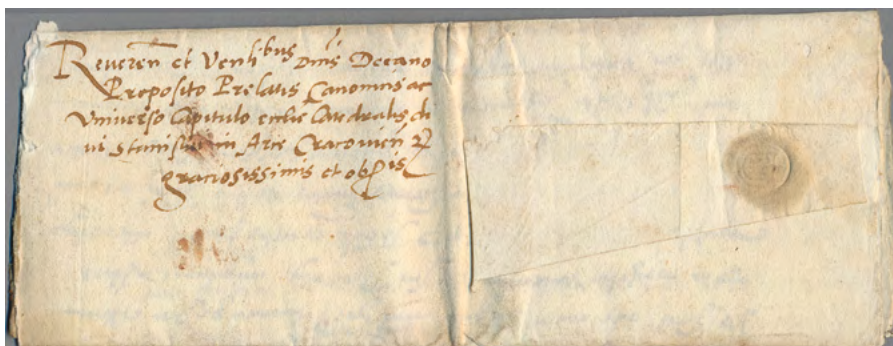 Reveren et Venlibus Dnis Decano
Preposito Prelatis Canonicis ac
Universo Capitulo ecclie Cathedralis di
vi Stanislai in Arce Cracovien
graciosissimis et